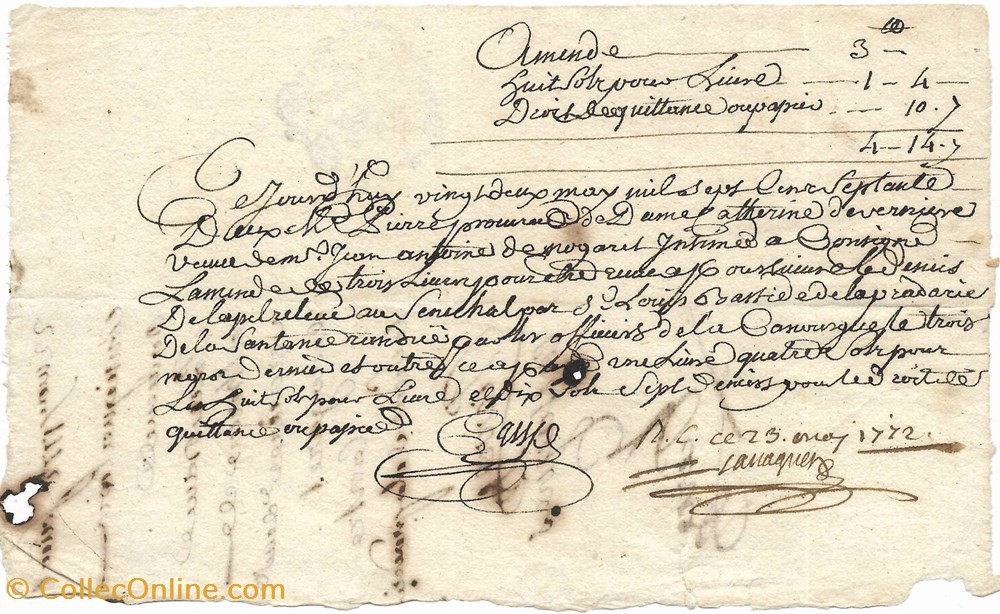 ₶
Amende — 3 —
huit sols pour Livre — 1 — 4 —
Droit de quittance ou papier — 10 . 7
4 — 14 . 7
Ce Jourd'huy vingt deux may mil sept Cens Septante
Deux Me Pierre procureur de Dame Catherine de verniere
veuve de mr. Jean antoine de nogaret Intimée a Consigné
Lamende de trois Livres pour être reçue a poursuivre le demis
De lapel relevé au Senechal par Sr. Louis Bastide de lapradarie
De la Santance randue par les officiers de la Canourgue le trois
mars dernier et outre ce a payé une Livre quatre sols pour
Les huit sols pour Livre et dix sols sept deniers pour le droit de
quittance ou papier
R. C. ce 23. may 1772.
© CollecOnline.com